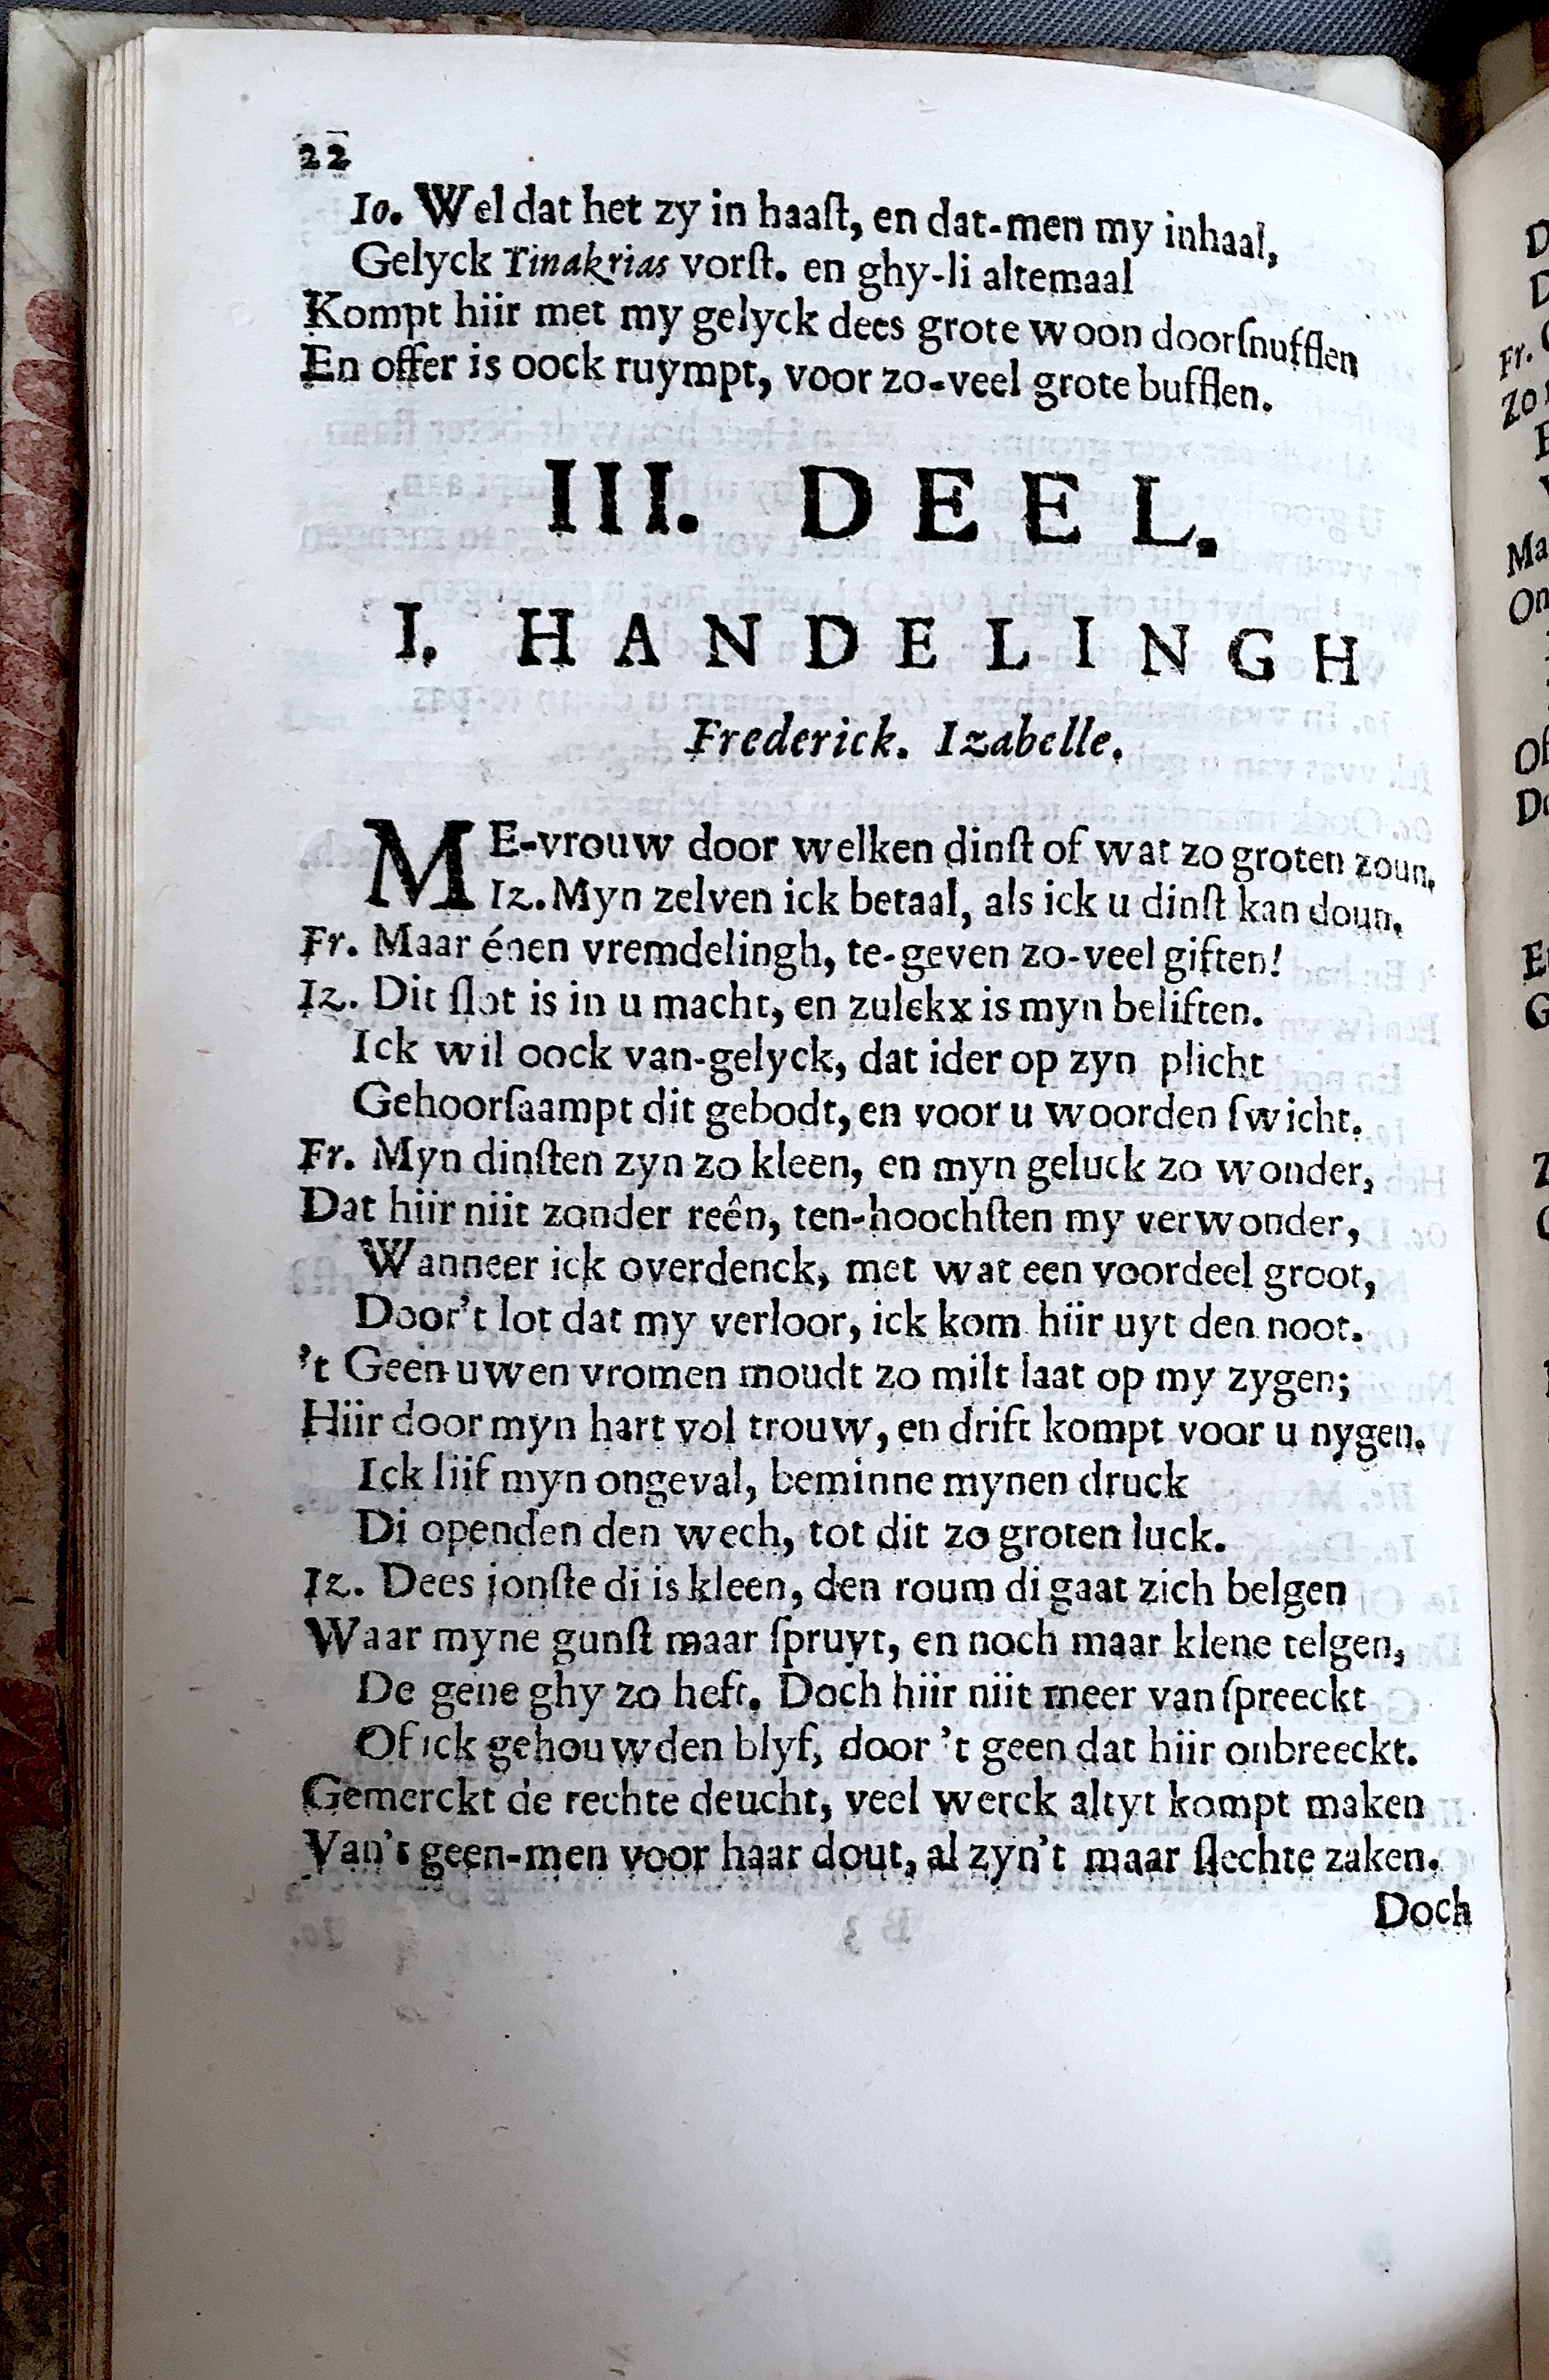 22
Io. Wel dat het zy in haaſt, en dat-men my inhaal,
Gelyck Tinakrias vorſt. en ghy-li altemaal
Kompt hiir met my gelyck dees grote woon doorſnufflen
En offer is oock ruympt, voor zo-veel grote bufflen.
III. DEEL.
I. HANDELINGH
Frederick. Izabelle.
ME-vrouw door welken dinſt of wat zo groten zoun.
Iz. Myn zelven ick betaal, als ick u dinſt kan doun.
Fr. Maar énen vremdelingh, te-geven zo-veel giften!
Iz. Dit ſlot is in u macht, en zulckx is myn beliften.
Ick wil oock van-gelyck, dat ider op zyn plicht
Gehoorſaampt dit gebodt, en voor u woorden ſwicht.
Fr. Myn dinſten zyn zo kleen, en myn geluck zo wonder,
Dat hiir niit zonder reên, ten-hoochſten my verwonder,
Wanneer ick overdenck, met wat een voordeel groot,
Door't lot dat my verloor, ick kom hiir uyt den noot.
't Geen uwen vromen moudt zo milt laat op my zygen;
Hiir door myn hart vol trouw, en drift kompt voor u nygen.
Ick liif myn ongeval, beminne mynen druck
Di openden den wech, tot dit zo groten luck.
Iz. Dees jonſte di is kleen, den roum di gaat zich belgen
Waar myne gunſt maar ſpruyt, en noch maar klene telgen,
De gene ghy zo heft. Doch hiir niit meer van ſpreeckt
Of ick gehouwden blyf, door 't geen dat hiir onbreeckt.
Gemerckt de rechte deucht, veel werck altyt kompt maken
Van't geen-men voor haar dout, al zyn't maar ſlechte zaken.
Doch